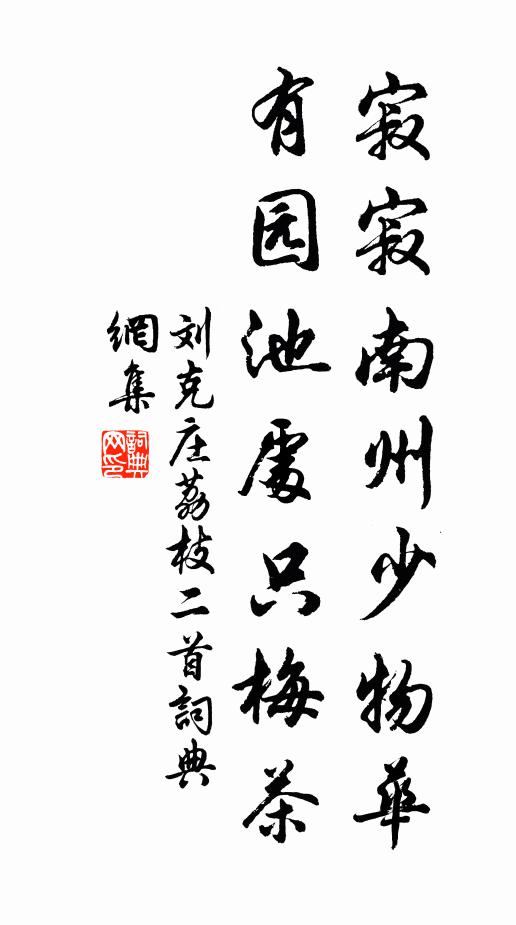 寂寂南州少物華
有园池處只梅茶
刘克庄荔枝二首詞典
網集
詞典
网印